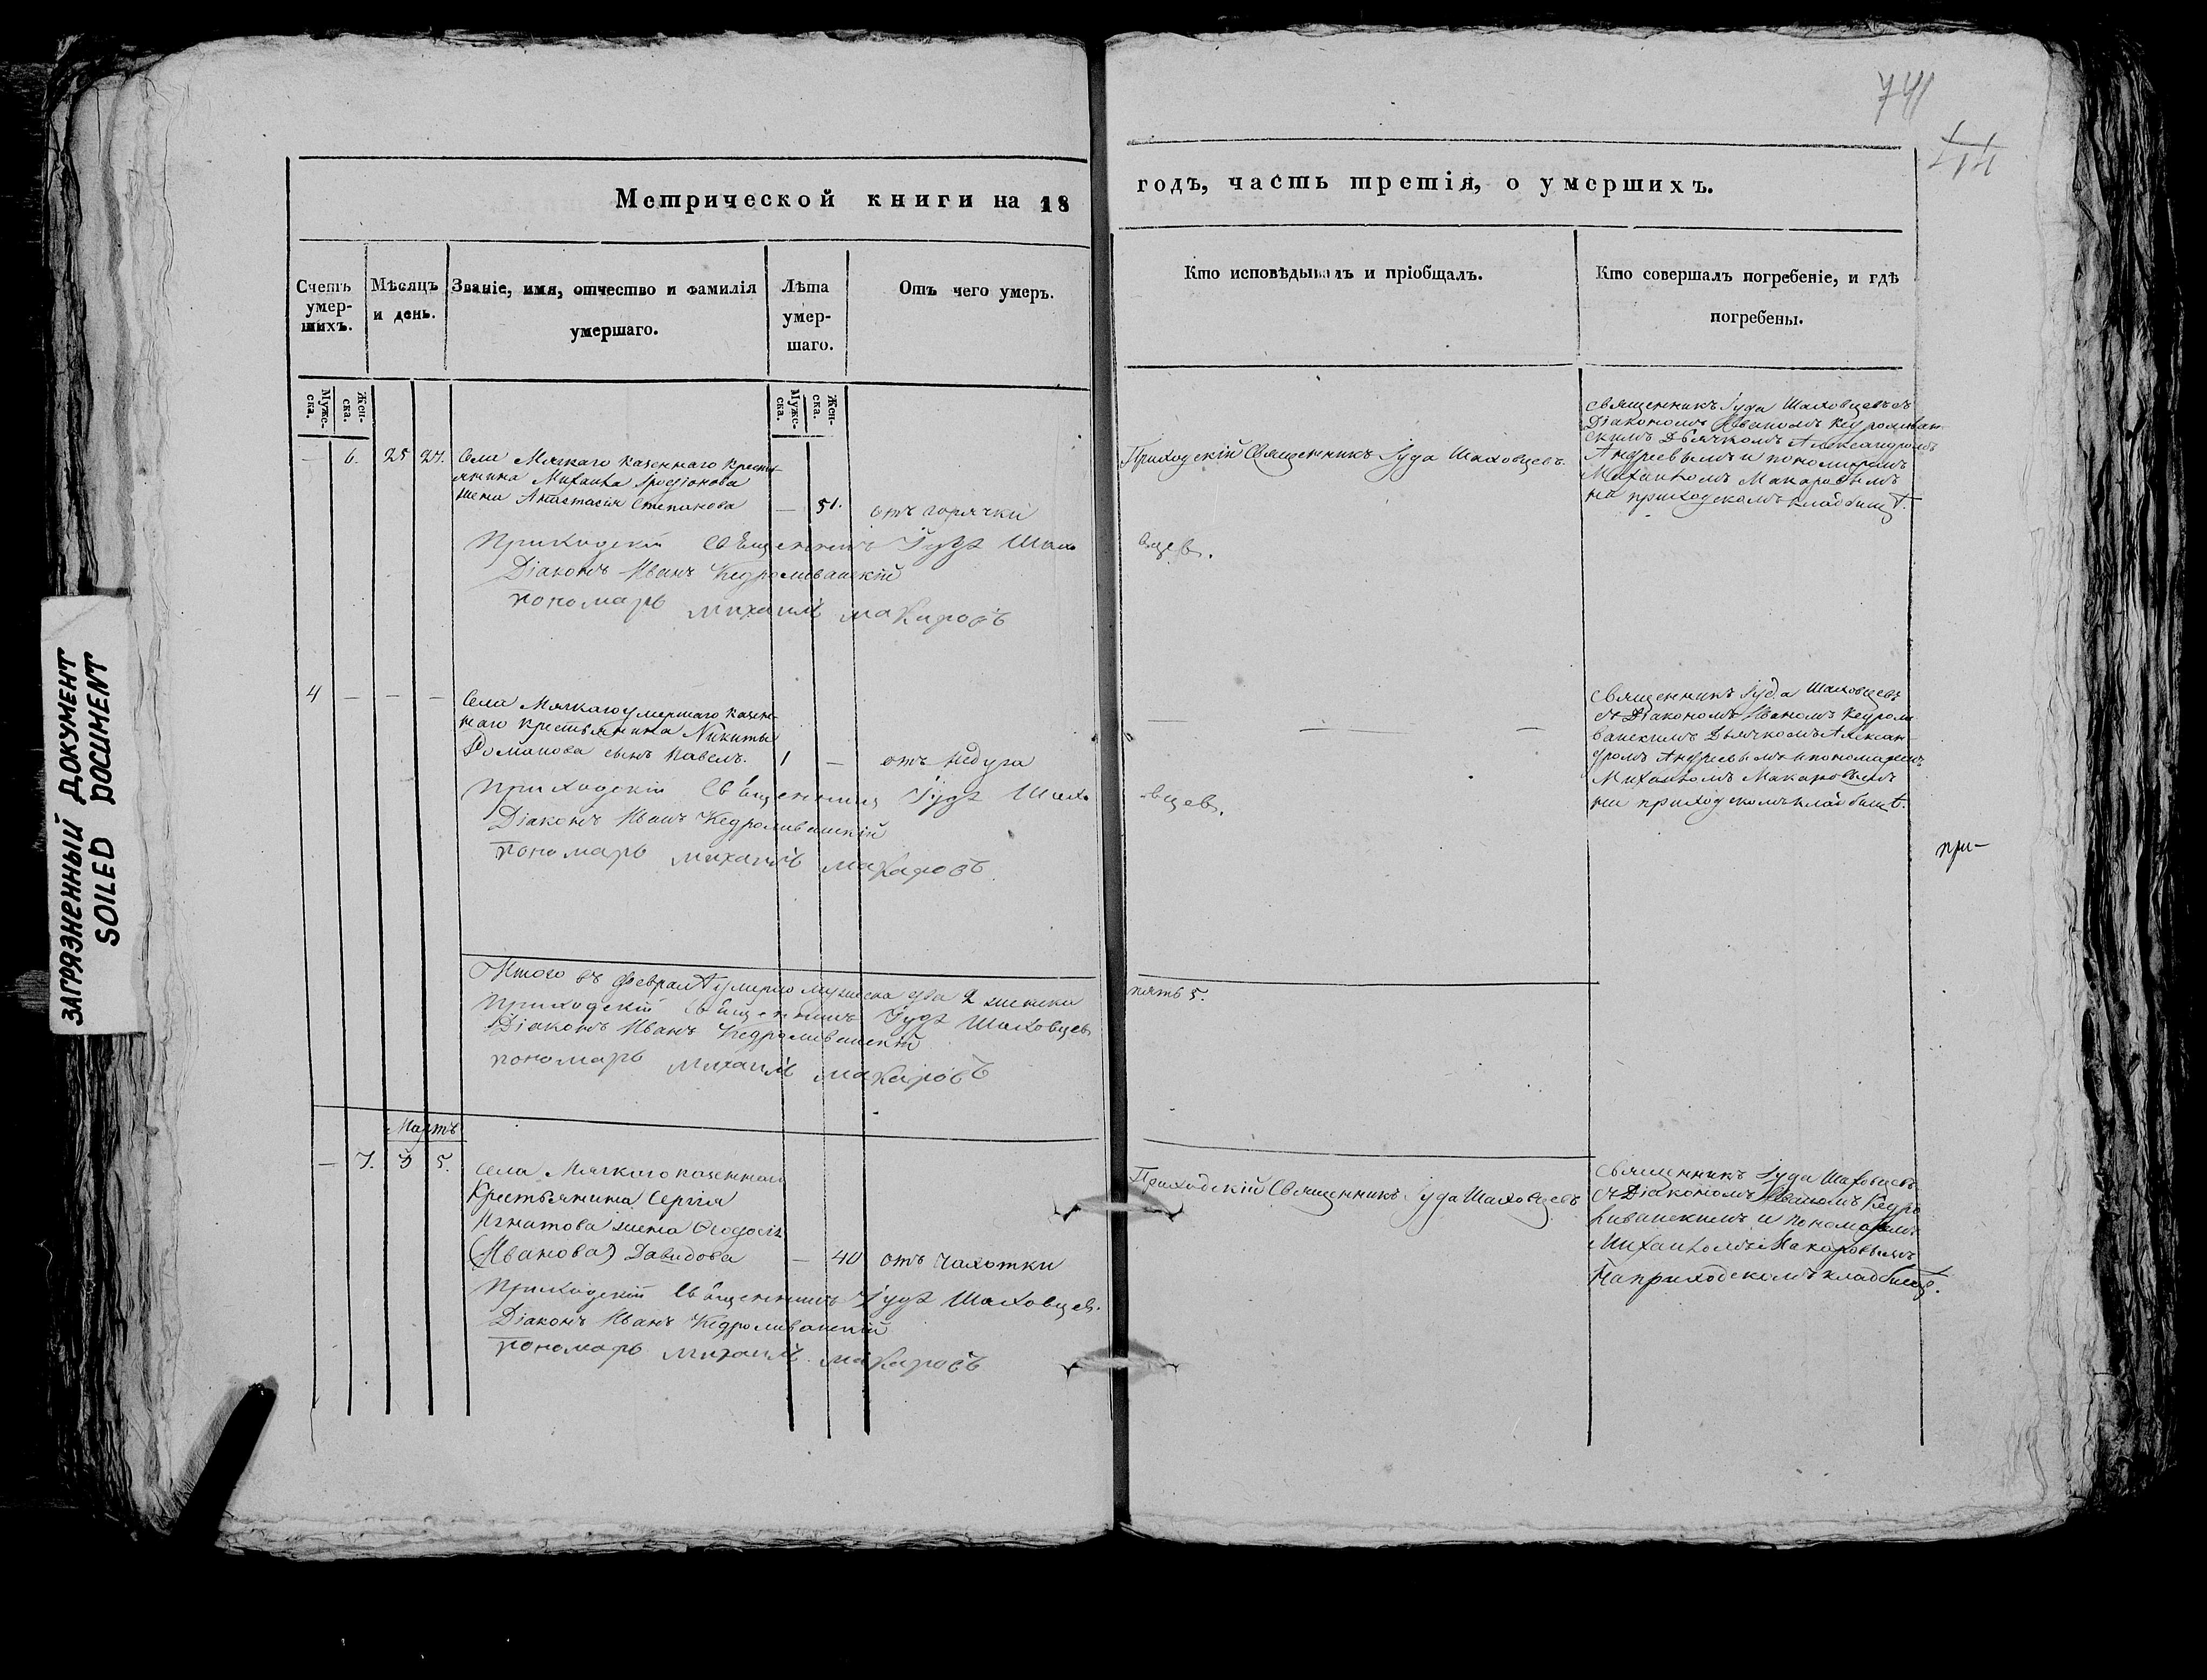 741
44
Метрической книги на 18
годъ, часть третія, о умершихъ.
Счетъ умер-шихъ.
Мѣсяцъ и день.
Званіе, имя, отчество и фамилія умершаго.
Лѣта умер-шаго.
Отъ чего умеръ.
Кто исповѣдывалъ и пріобщалъ.
Кто совершалъ погребеніе, и гдѣ погребены.
Муже-ска.
Жен-ска.
Муже-ска.
Жен-ска.
— 6. 25 27. Села Мягкаго казеннаго кресть-
янина Михаила Иродіонова
жена Анастасія Степанова — 51. отъ горячки
Приходскій Священникъ Іуда Шаховцевъ.
Священникъ Іуда Шаховцевъ съ
Діакономъ Иваномъ Кедроливан-
скимъ Дьячкомъ Александромъ
Андреевымъ и пономаремъ
Михаиломъ Макаровымъ
на приходскомъ кладбищѣ.
Приходскій Священникъ Іуда Шахо вцев.
Діаконъ Иванъ Кедроливанскій
пономарь михаилъ макаровъ
4 — — — Села Мягкаго умершаго казен-
наго крестьянина Никиты
Романова сынъ Павелъ. 1 — отъ недуга
— — —
Священникъ Іуда Шаховцевъ
съ Діакономъ Иваномъ Кедроли
ванскимъ Дьячкомъ Алексан-
дромъ Андреевымъ и пономаремъ
Михаиломъ Макаровымъ
на приходскомъ кладбищѣ.
Приходскій Священникъ Іуда Шахо вцев.
Діаконъ Иванъ Кедроливанскій
пономарь михаилъ макаровъ
при-
Итого въ Февралѣ умерло мужеска два 2 женска пять 5.
Приходскій Священникъ Іуда Шаховцев
Діаконъ Иванъ Кедроливанскій
пономарь михаилъ макаровъ
Мартъ
— 7. 3 5. Села Мягкаго казеннаго
Крестьянина Сергія
Игнатова жена Ѳеодосія
(Иванова) Давидова — 40 отъ чахотки
Приходскій Священникъ Іуда Шаховцевъ
Священникъ Іуда Шаховцевъ
съ Діакономъ Иваномъ Кедро
ливанскимъ и пономаремъ
Михаиломъ Макаровымъ
На приходскомъ кладбищѣ.
Приходскій Священникъ Іуда Шаховцев.
Діаконъ Иванъ Кедроливанскій
пономарь михаилъ макаровъ
ЗАГРЯЗНЕННЫЙ ДОКУМЕНТ
SOILED DOCUMENT